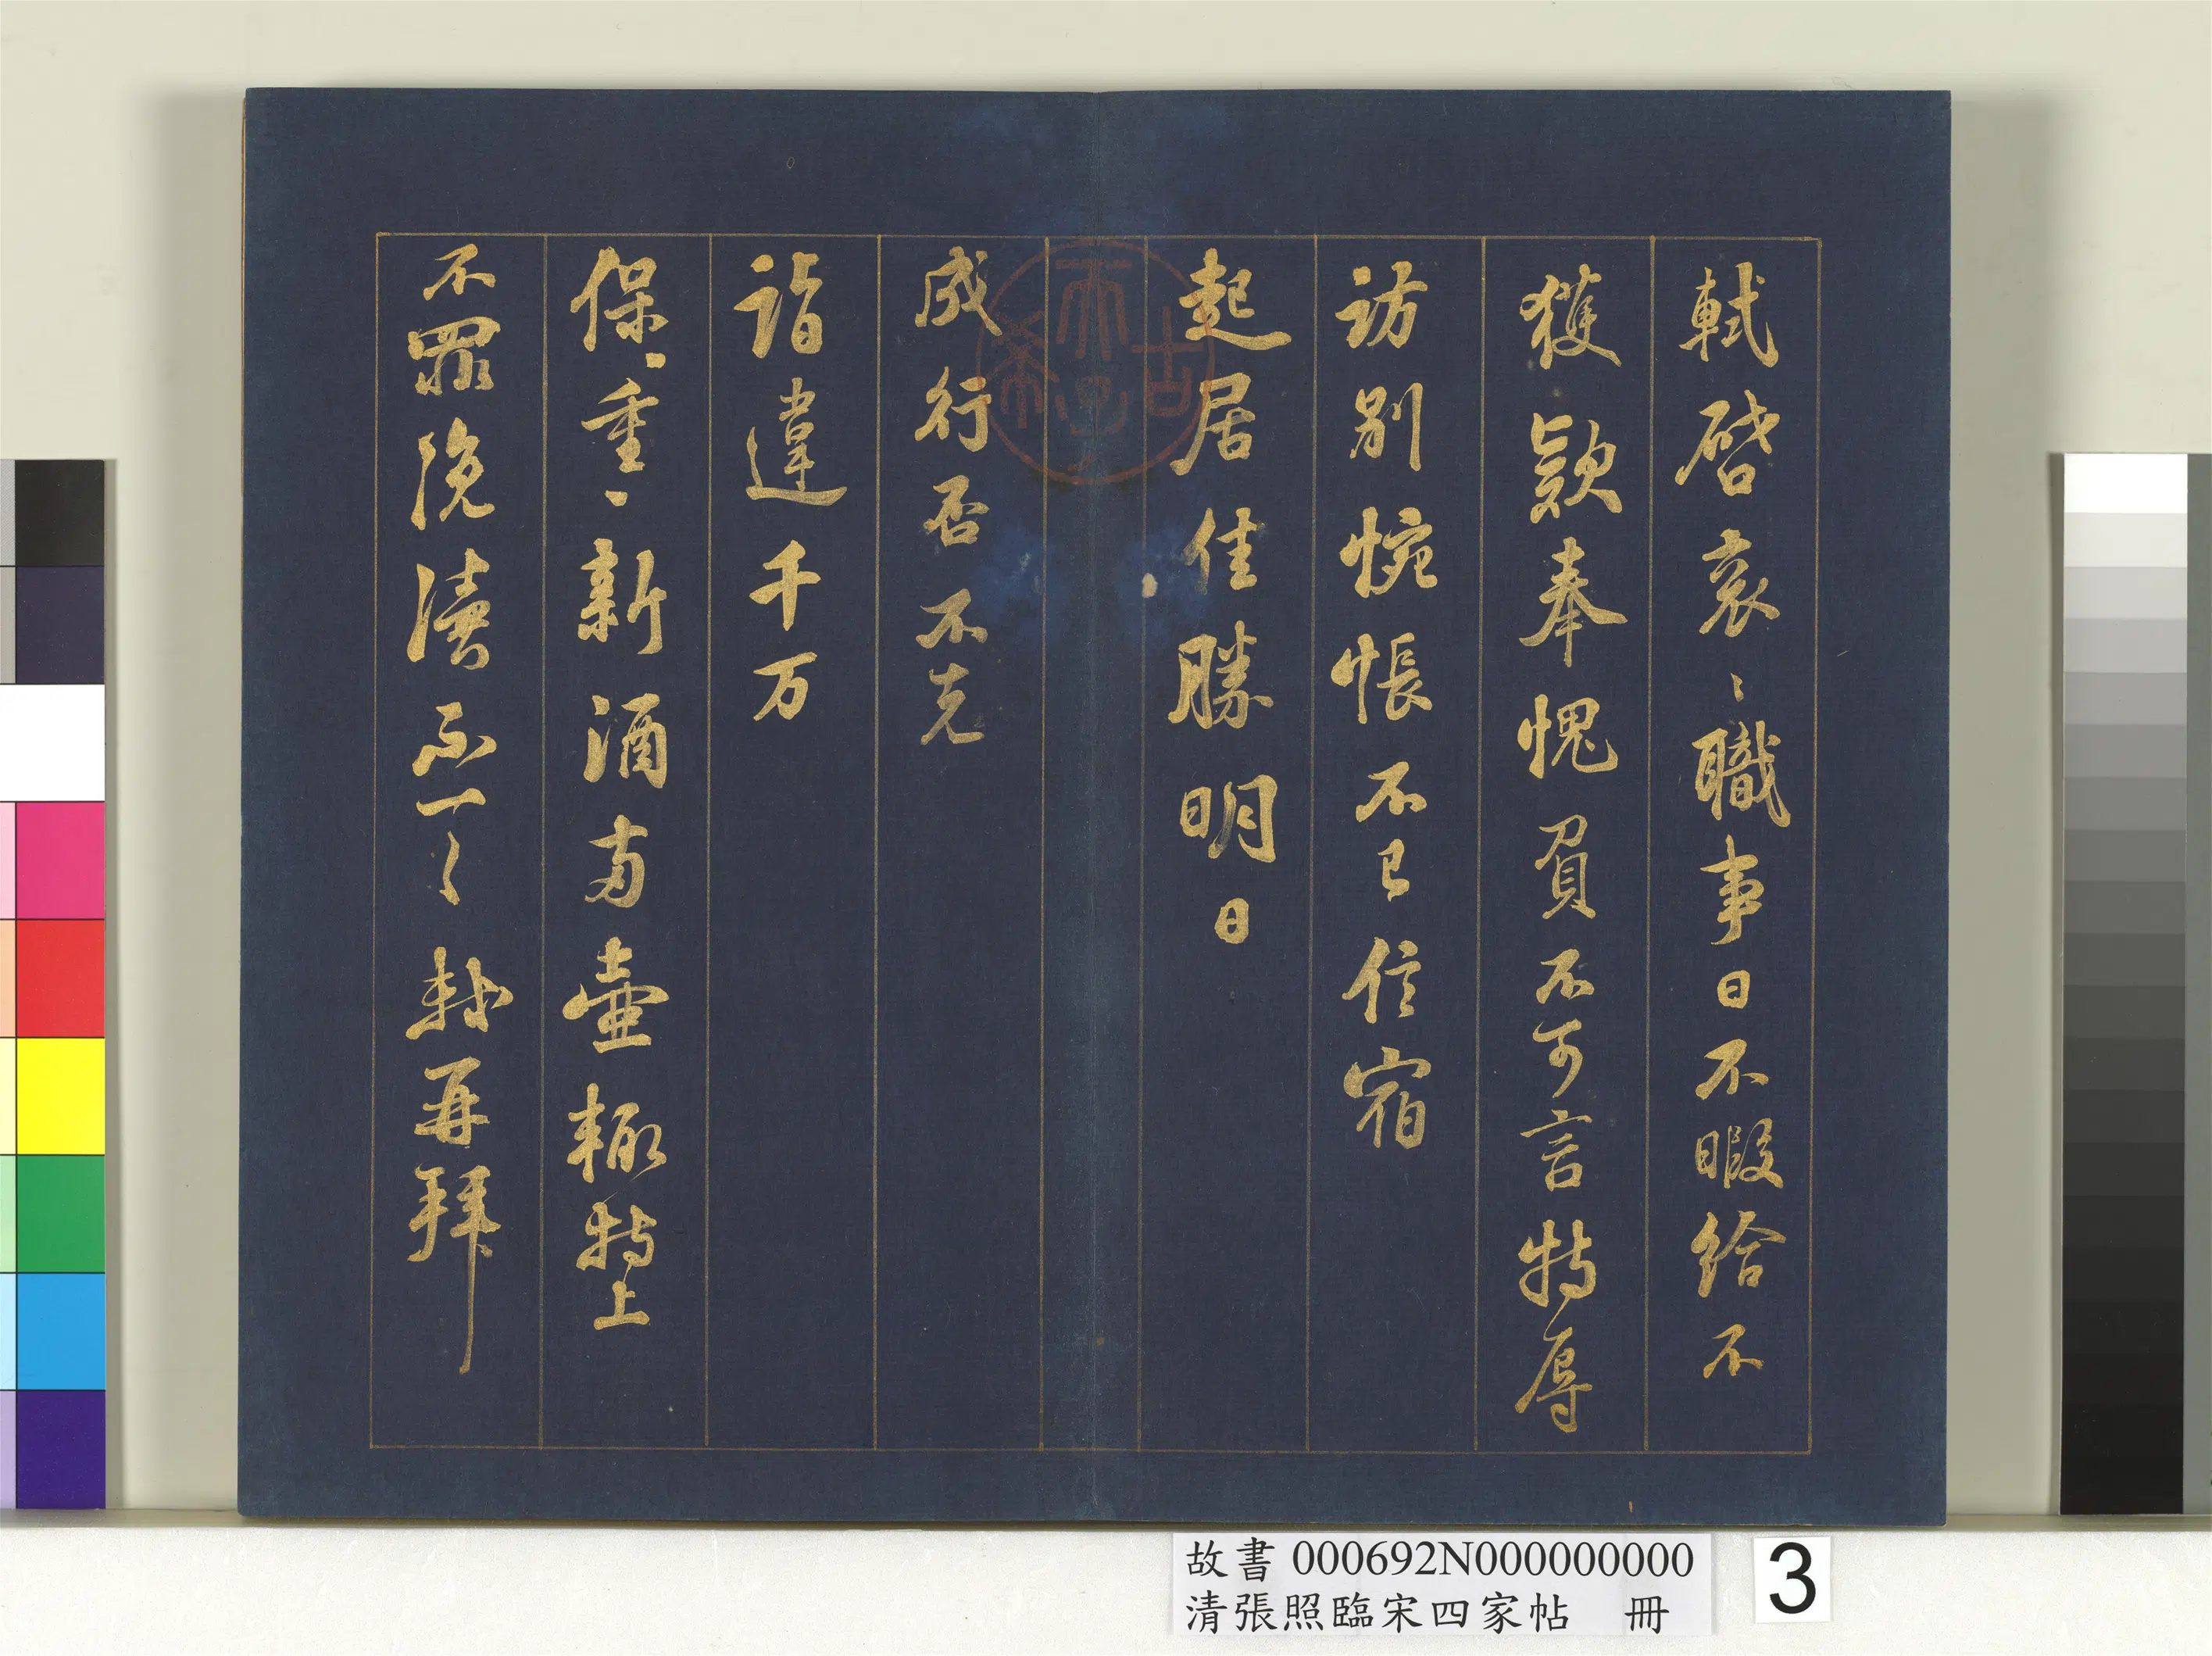 軾啓衰〻職事日不暇給不
獲款奉愧負不可言特辱
訪別惋悵不已信宿
起居佳勝明日
成行否不克
詣違千万
保〻重〻新酒兩壺輒特上
不罪浼瀆不一〻軾再拜
古希天子
故書 000692N000000000
清張照臨宋四家帖 冊
3